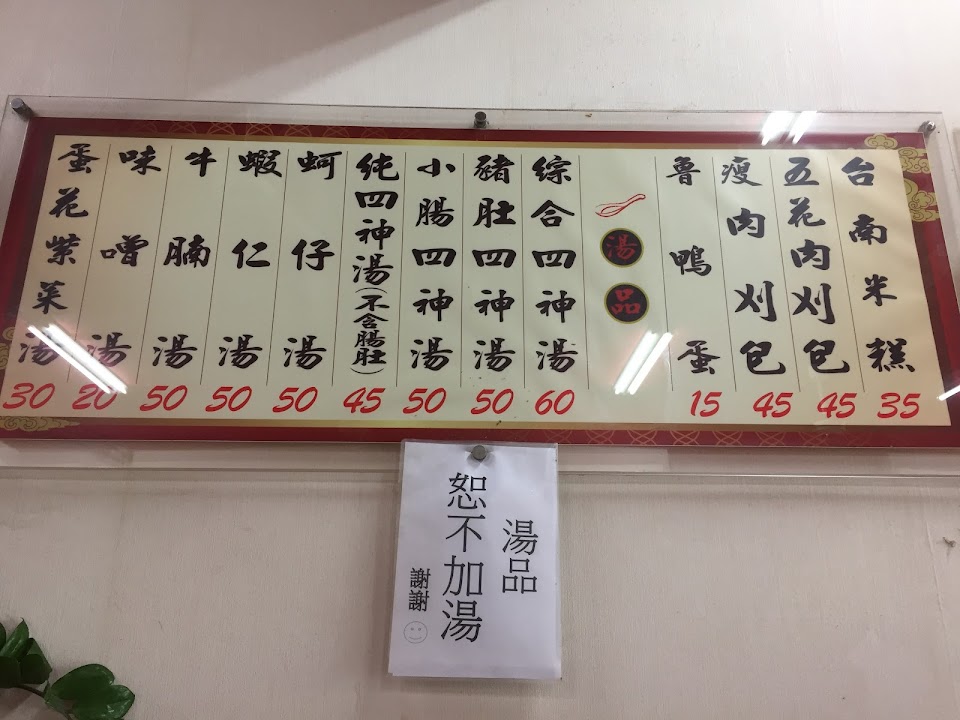 台南米糕 35
五花肉刈包 45
瘦肉刈包 45
魯鴨蛋 15
湯品
綜合四神湯 60
豬肚四神湯 50
小腸四神湯 50
純四神湯(不含腸肚) 45
蚵仔湯 50
蝦仁湯 50
牛腩湯 50
味噌湯 20
蛋花紫菜湯 30
湯品
恕不加湯
謝謝